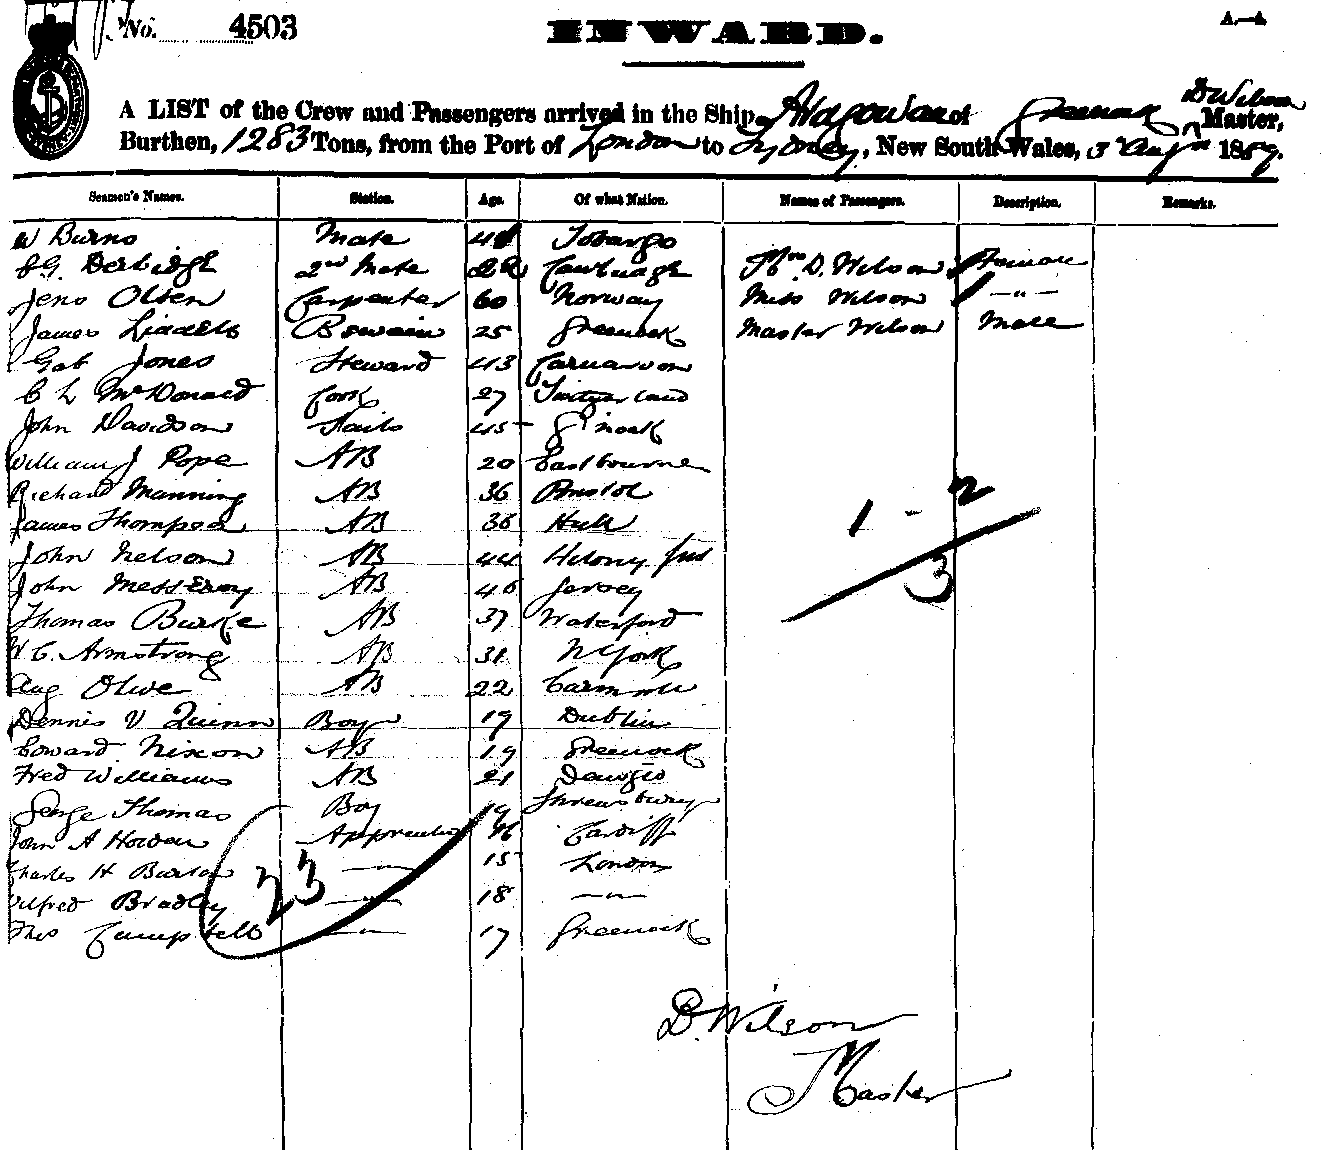 No. 4503
INWARD.
A LIST of the Crew and Passengers arrived in the Ship Ardgowan of Greenock D Wilson Master,
Burthen, 1283 Tons, from the Port of London to Sydney, New South Wales, 3rd Augst 1889.
Seamen's Names. Station. Age. Of what Nation. Names of Passengers. Description. Remarks.
W Burns Mate Tobargo
2nd Mate Mrs D. Wilson Female
Jens Olsen Carpenter 60 Norway Miss Wilson — " —
James Liddell Boswain 25 Greenock Master Wilson Male
Gab Jones Steward 43 Carnarvon
C L McDonald Cook 27 Switzerland
John Davidson Sails 45 G'nock
William J Pope AB 20 Eastbourne
Richard Manning AB 36 Bristol
James Thompson AB 36 Hull
John Nelson AB 44
John Messeroy AB 46 Jersey
Thomas Burke AB 37 Waterford
W. C. Armstrong AB 31 N York
Aug Olive AB 22
Dennis V Quinn Boy 19 Dublin
Edward Nixon AB 19 Greenock
Fred Williams AB 21 Danzig
George Thomas Boy 19 Shrewsbury
John A Howden Apprentice 16 Cardiff
Charles H Burton — " — 15 London
Alfred Bradley — " — 18 — " —
Thos Campbell — " — 17 Greenock
1 - 2
3
23
D. Wilson
Master